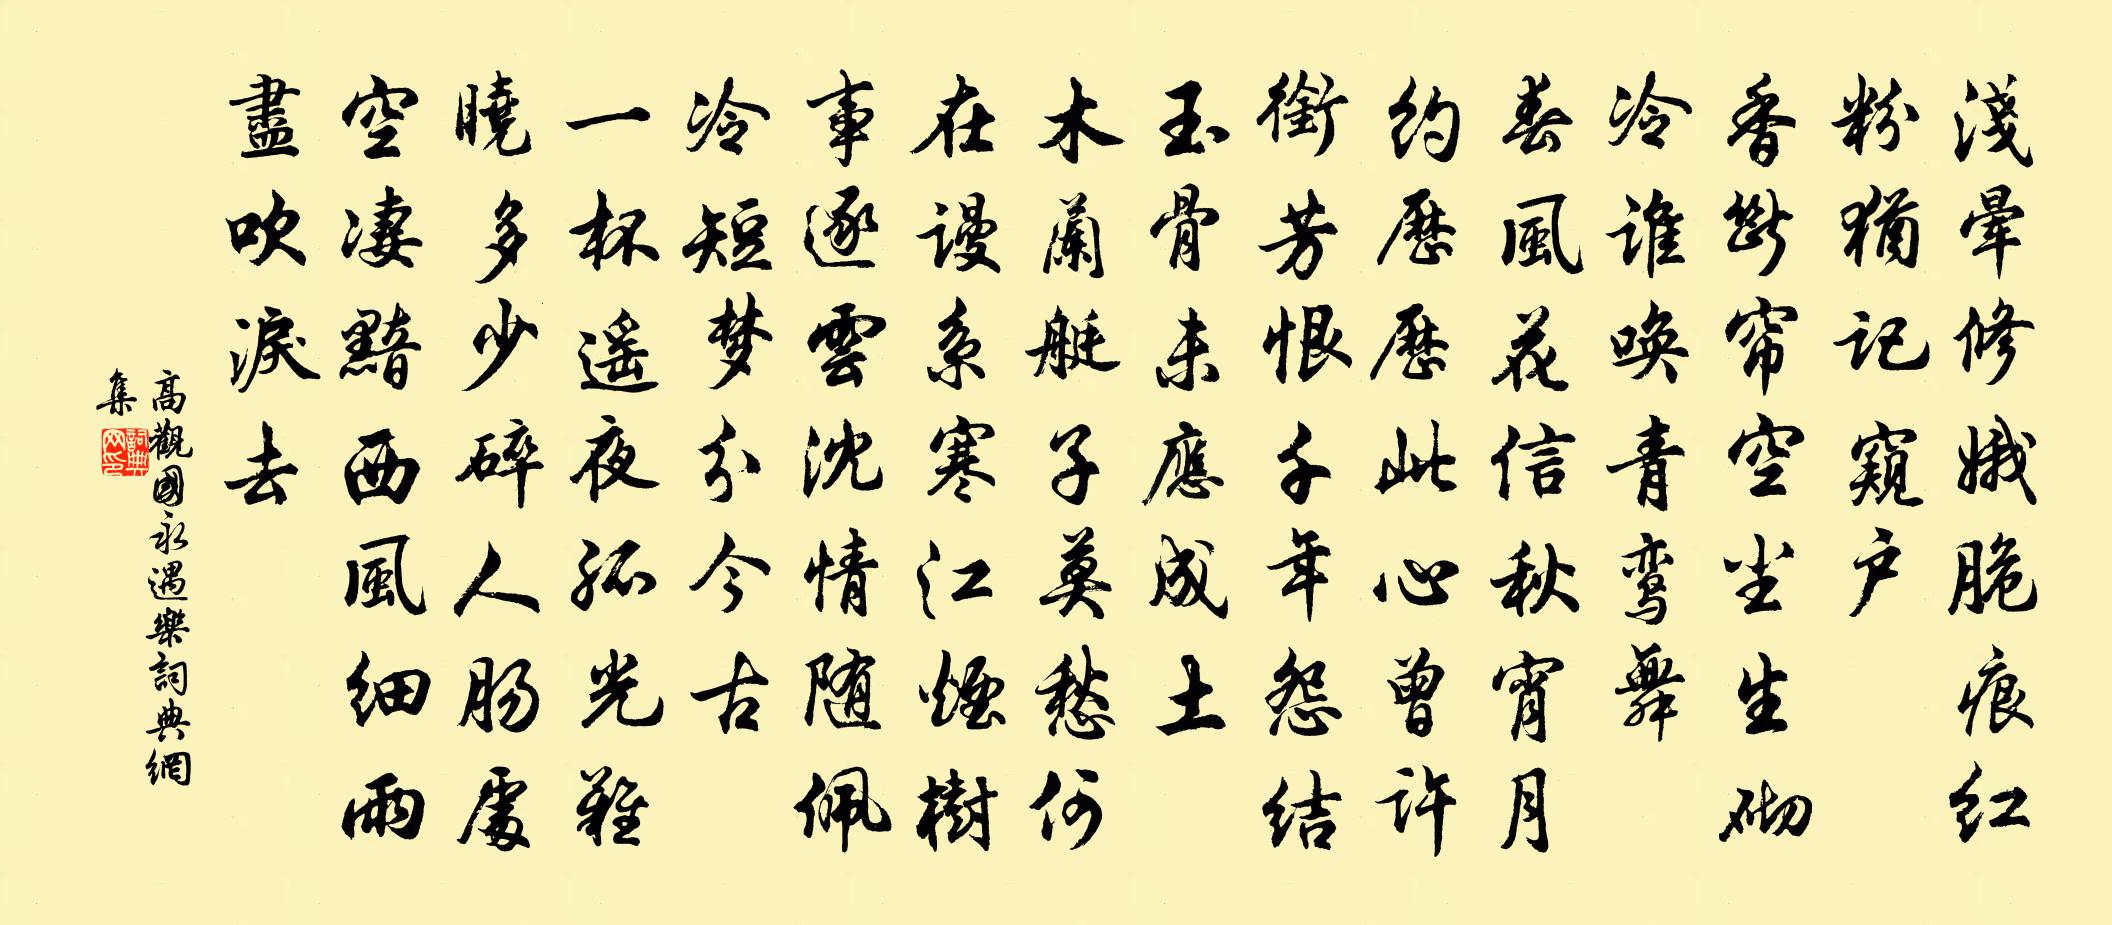 淺暈修蛾脆痕紅
粉猶記窺户
香斷帘空尘生砌
冷谁唤青鸾舞
春風花信秋宵月
约歷歷此心曾许
銜芳恨千年怨结
玉骨未應成土
木蘭艇子莫愁何
在谩系寒江煙樹
事逐雲沈情随佩
冷短梦分今古
一杯遥夜孤光難
曉多少碎人肠處
空凄黯西風细雨
盡吹淚去
高觀國永遇樂詞典網
集
詞典
网印